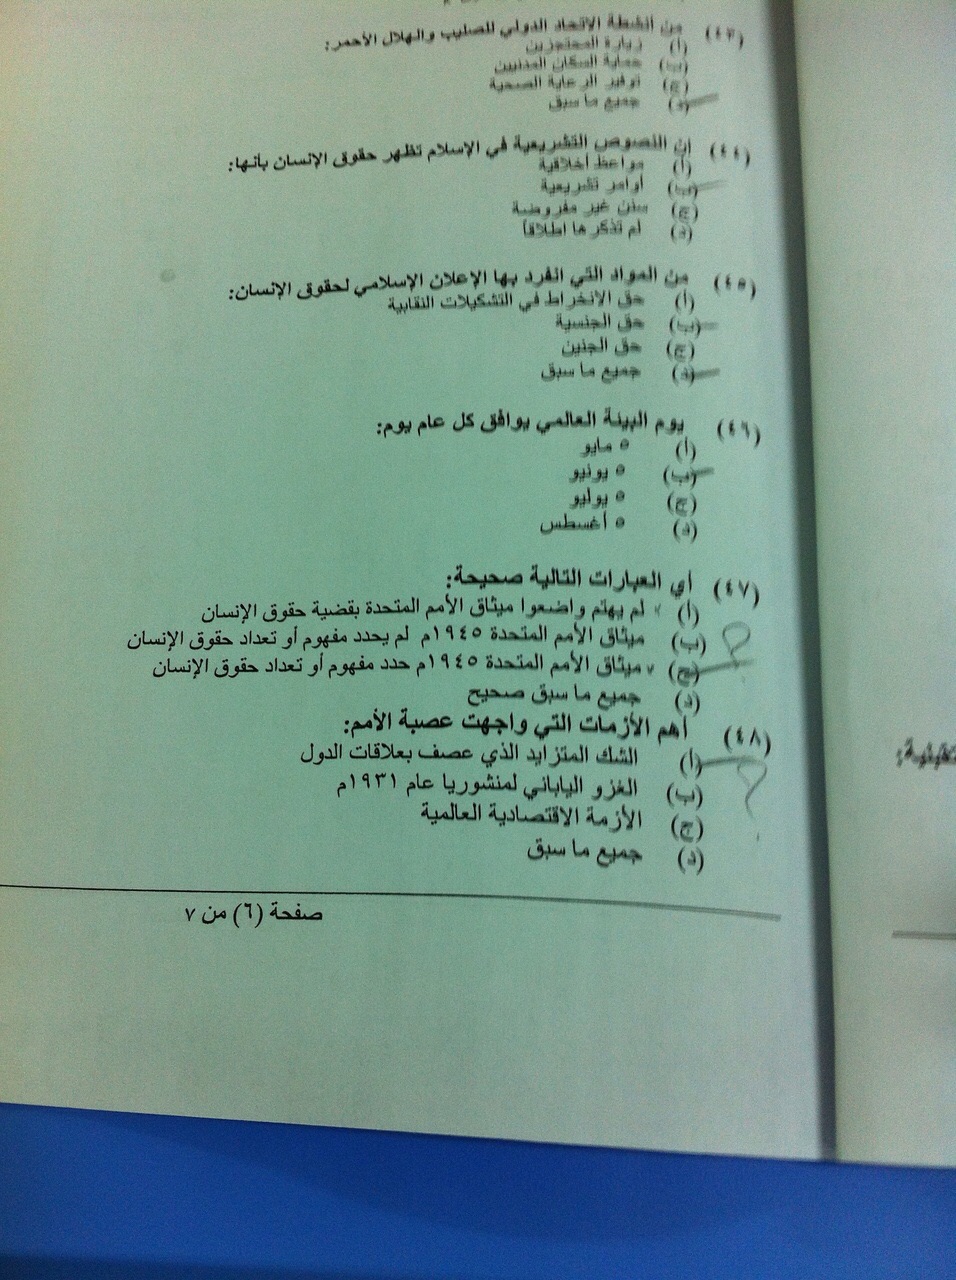 (٤٣) من أنشطة الإتحاد الدولي للصليب والهلال الأحمر:
(أ) زيارة المحتجزين
(ب) حماية السكان المدنيين
(ج) توفير الرعاية الصحية
(د) جميع ما سبق
(٤٤) إن النصوص التشريعية في الإسلام تظهر حقوق الإنسان بأنها:
(أ) مواعظ أخلاقية
(ب) أوامر تشريعية
(ج) سنن غير مفروضة
(د) لم تذكرها اطلاقاً
(٤٥) من المواد التي انفرد بها الإعلان الإسلامي لحقوق الإنسان:
(أ) حق الانخراط في التشكيلات النقابية
(ب) حق الجنسية
(ج) حق الجنين
(د) جميع ما سبق
(٤٦) يوم البيئة العالمي يوافق كل عام يوم:
(أ) ٥ مايو
(ب) ٥ يونيو
(ج) ٥ يوليو
(د) ٥ أغسطس
(٤٧) أي العبارات التالية صحيحة:
(أ) لم يهتم واضعوا ميثاق الأمم المتحدة بقضية حقوق الإنسان
(ب) ميثاق الأمم المتحدة ١٩٤٥م لم يحدد مفهوم أو تعداد حقوق الإنسان
(ج) ميثاق الأمم المتحدة ١٩٤٥م حدد مفهوم أو تعداد حقوق الإنسان
(د) جميع ما سبق صحيح
(٤٨) أهم الأزمات التي واجهت عصبة الأمم:
(أ) الشك المتزايد الذي عصف بعلاقات الدول
(ب) الغزو الياباني لمنشوريا عام ١٩٣١م
(ج) الأزمة الاقتصادية العالمية
(د) جميع ما سبق
صفحة (٦) من ٧